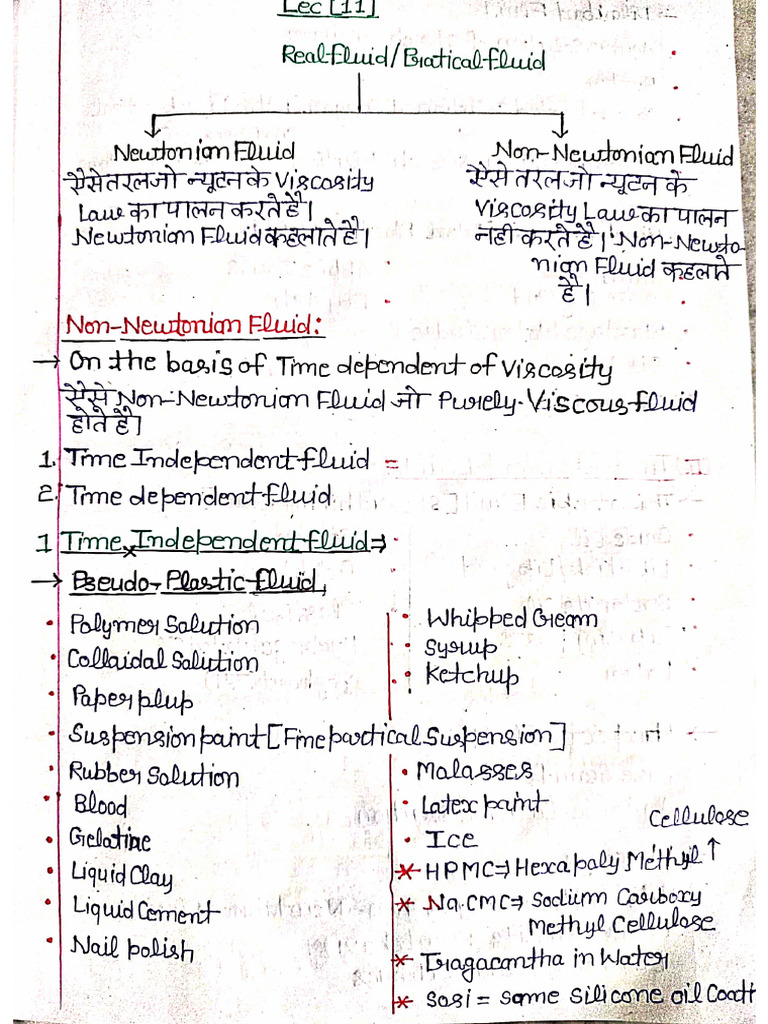 Lec [11]
Real fluid/Pratical fluid
Newtonian Fluid
ऐसे तरल जो न्यूटन के Viscosity
Law का पालन करते है।
Newtonian Fluid कहलाते है।
Non-Newtonian Fluid
ऐसे तरल जो न्यूटन के
Viscosity Law का पालन
नहीं करते है। Non-Newto-
nian Fluid कहलाते
है।
Non-Newtonian Fluid:
→ On the basis of Time dependent of Viscosity
ऐसे Non-Newtonian Fluid जो Purely-Viscous fluid
होते है।
1. Time Independent fluid =
2. Time dependent fluid
1 Time Independent fluid ⇒
→ Pseudo-Plastic fluid,
• Polymer Solution
• Collaidal Salution
• Paper plup
• Whipped Cream
• Syrup
• Ketchup
• Suspension paint [Fine partical Suspension]
• Rubber Solution
• Blood
• Gelatine
• Liquid Clay
• Liquid Cement
• Nail polish
• Malasses
• Latex paint
• Ice
Cellulose
* HPMC ⇒ Hexapoly Methyl ↑
* Na.CMC ⇒ Sodium Carboxy
Methyl Cellulose
* Tragacantha in Water
* Sosi = Some Silicone oil